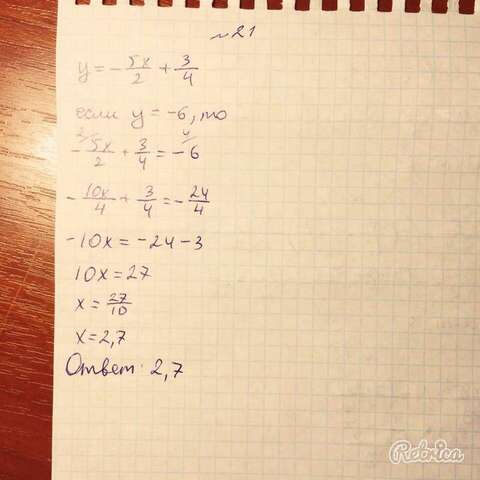 №21
y = -5x/2 + 3/4
если y = -6, то
2/ 4/
-5x/2 + 3/4 = -6
-10x/4 + 3/4 = -24/4
-10x = -24 - 3
10x = 27
x = 27/10
x = 2,7
Ответ: 2,7
Retrica